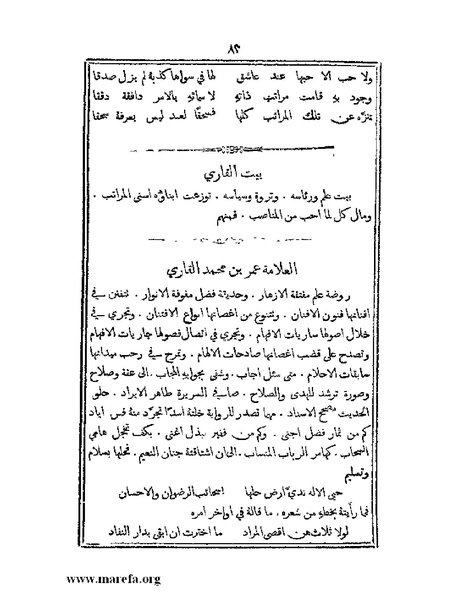 ٨٢
ولا حب الا حبها عند عاشق لها في سواها كذبة لم يزل صدقا
وجود به قامت مراتبها ذاته لاسمائه بالامر دافقة دفقا
تنزه عن تلك المراتب كلها فسحقا لعبد ليس يعرفة سحقا
بيت القاري
بيت علم ورئاسه . وثروة وسياسه . توزعت ابناؤه اسنى المراتب .
ومال كل لما احب من المناصب . فمنهم
العلامة عمر بن محمد القاري
روضة علم مفتقلة الازهار . وحديثة فضل مفوفة الانوار . تتفنن في
افنانها فنون الافنان . ويتنوع من اغصانها انواع الافتنان . وتجري في
خلال اصولها ساريات الافهام . وتجري في اتصال فصولها جاريات الافهام
وتصدح على قضب اغصانها صادحات الالهام . وتمرح في رحب ميدانها
سابقات الاحلام . متى سئل اجاب . وشفى بجوابه الحجاب . الى عفة وصلاح
وصورة ترشد للهدى والصلاح . صافي السريرة طاهر الايراد . حلو
الحديث صحيح الاسناد . مهما تصدر للرواية خلته اسدا تجرد منه قس اياد
كم من ثمار فضل اجنى . وكم من فقير ببذل اغنى . بكف تخجل هامي
السحاب . كهامر الرباب المنساب . الى ان اشتاقته جنان النعيم . فحلها بسلام
وتسليم
حيى الاله ندي ارض حلها سحائب الرضوان والاحسان
فما رأيتة بخطه من شعره . ما قالة في اواخر امره
لولا ثلاث هن اقصى المراد ما اخترت ان ابقى بدار النفاد
www.marefa.org